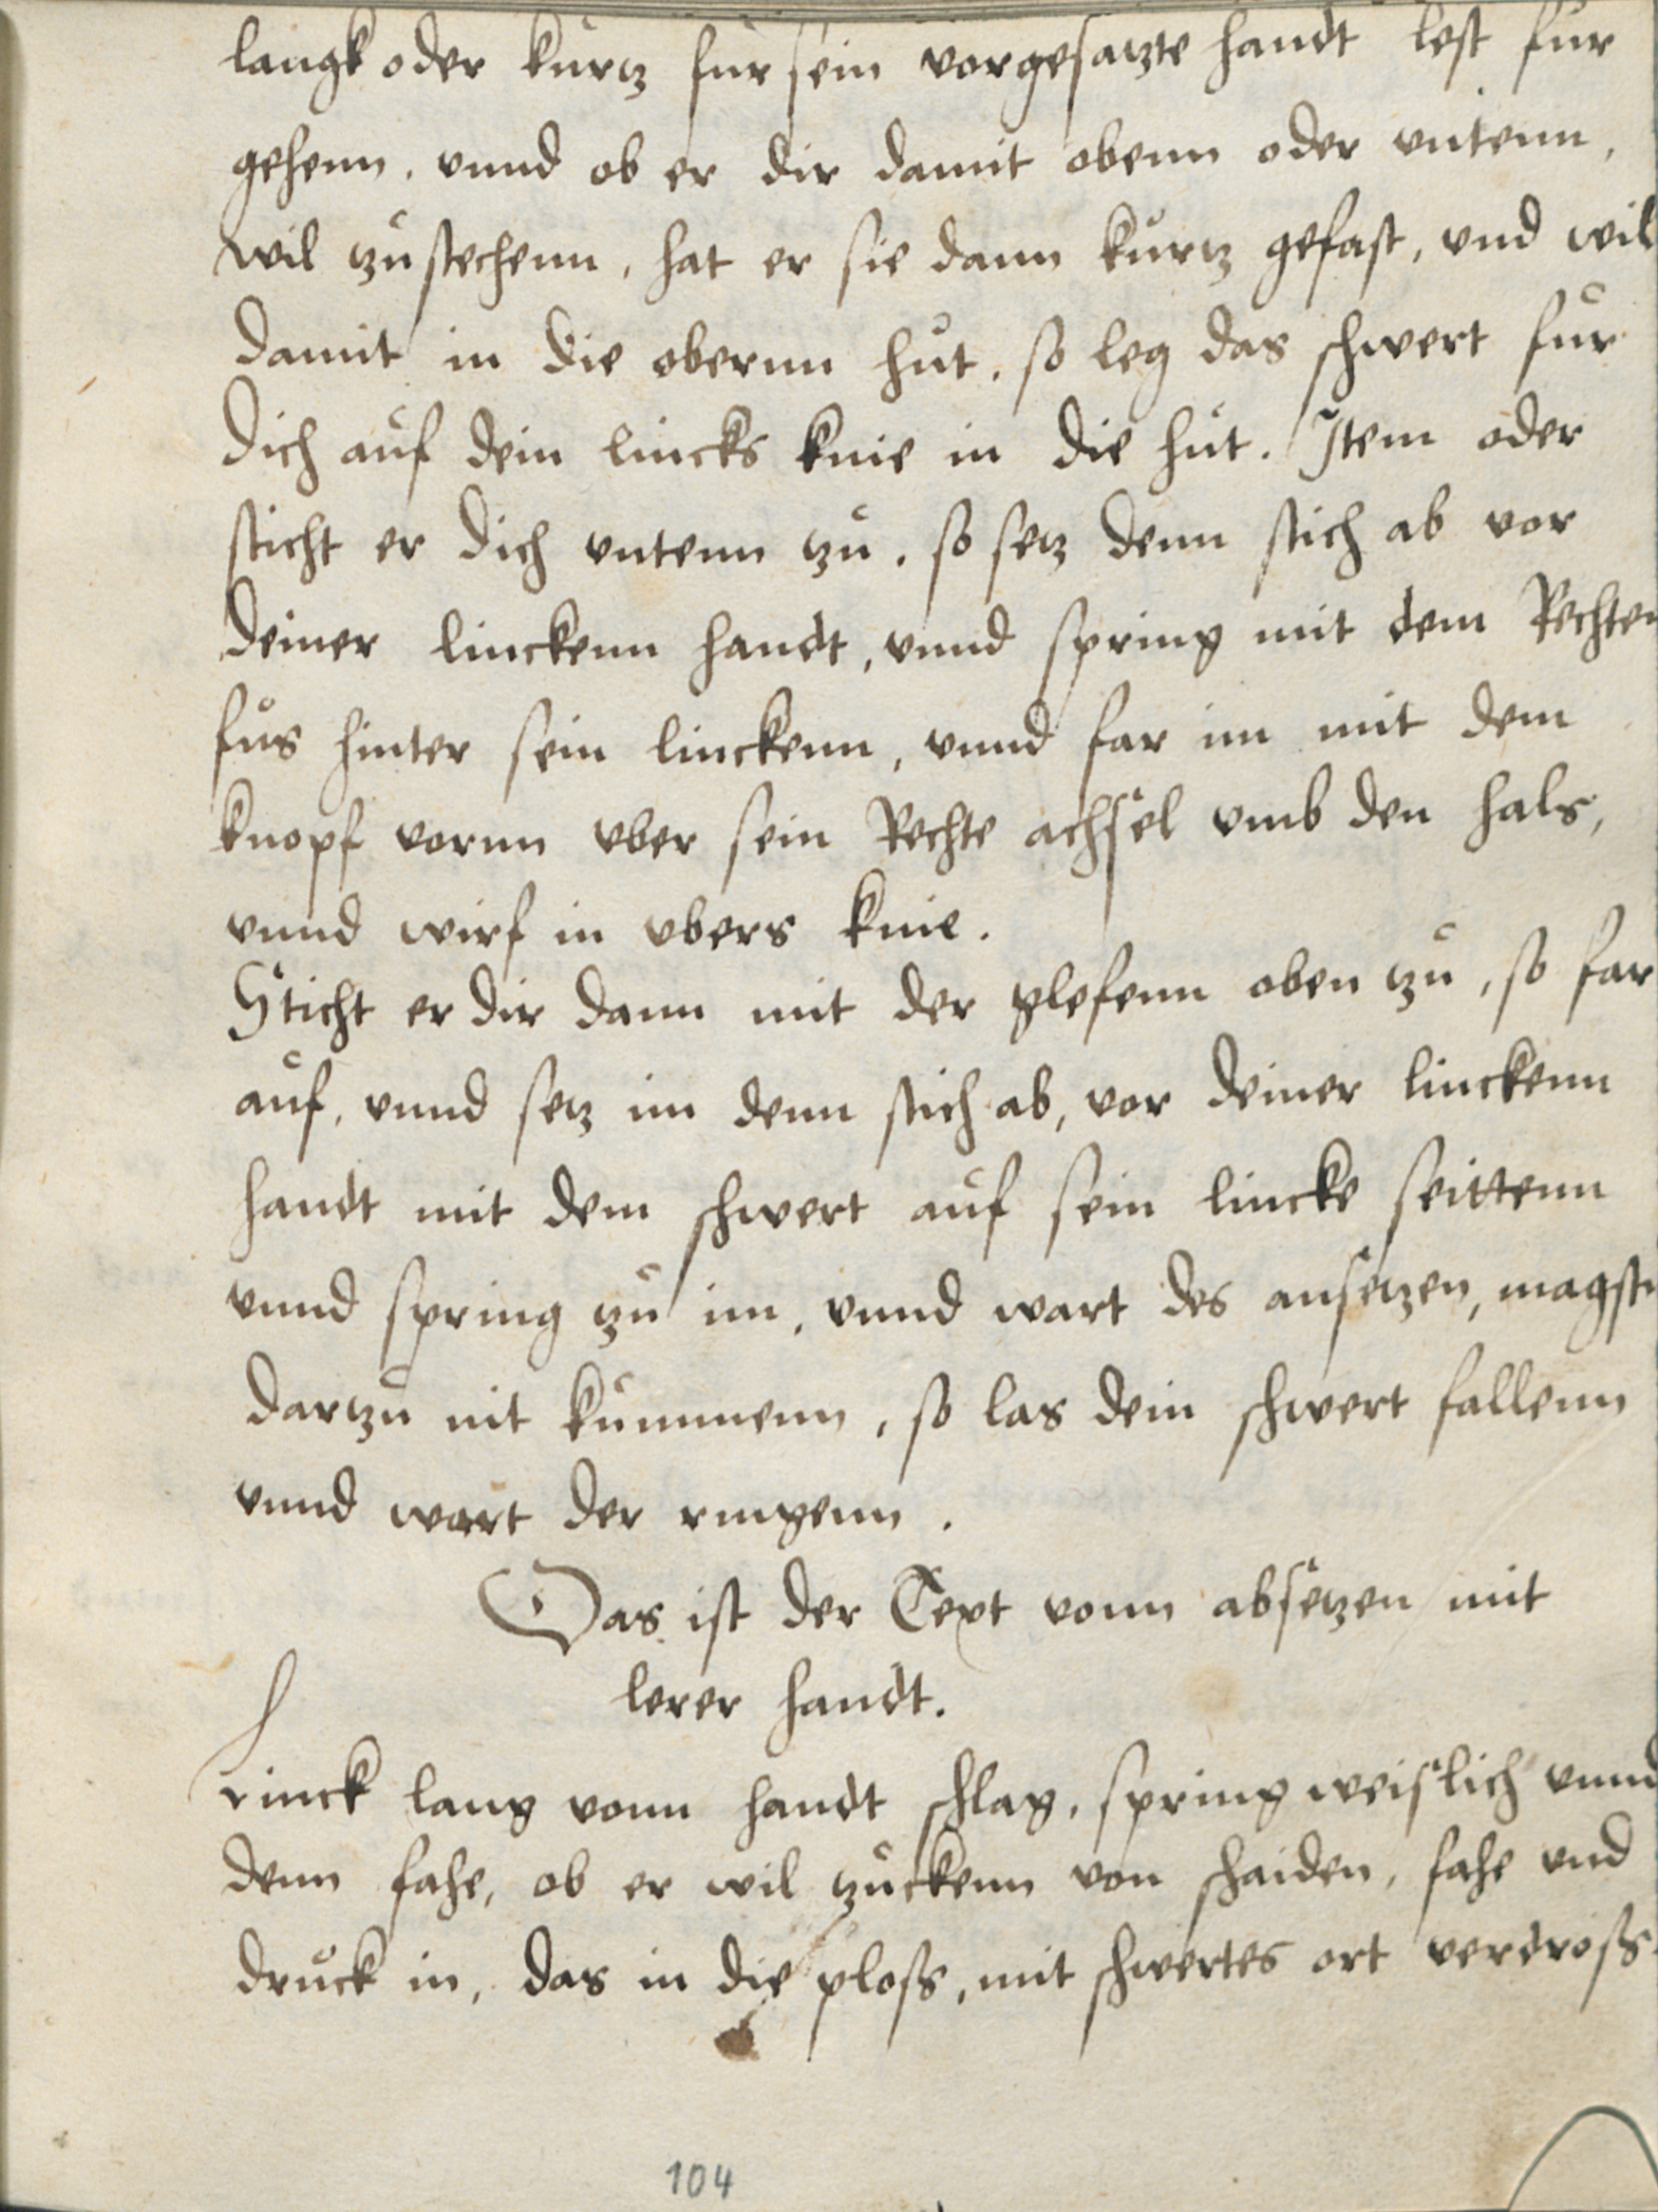 langk oder kurtz fur sein vorgesatzte handt lest fur
gehenn. vnnd ob er dir damit obenn oder vntenn,
wil zu stechenn, hat er sie dann kurtz gefast, vnd wil
damit in die obernn hut. so leg das schwert fur
dich auf dein lincks knie in die hut. Item oder
sticht er dich vntenn zu. so setz denn stich ab vor
deiner linckenn handt, vnnd spring mit dem Rechten
fus hinter sein linckenn, vnnd far im mit dem
knopf vornn vber sein Rechte achsel vmb den hals,
vnnd wirf in vbers knie.
Sticht er dir dann mit der glefenn oben zu, so far
auf, vnnd setz im denn stich ab, vor deiner linckenn
handt mit dem schwert auf sein lincke seittenn
vnnd spring zu im, vnnd wart des ansetzen, magstu
dartzu nit kummenn, so las dein schwert fallenn
vnnd wart der ringenn.
Das ist der Text vonn absetzen mit
lerer handt.
h
linck lang vonn handt schlag, spring weislich vnnd
denn fahe, ob er wil zuckenn von schaiden, fahe vnd
druck in, das in die ploss, mit schwertes ort verdross.
104